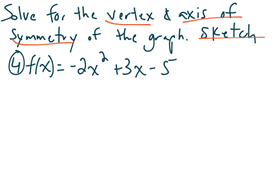 Solve for the vertex & axis of
symmetry of the graph. sketch
④ f(x) = -2x² + 3x - 5